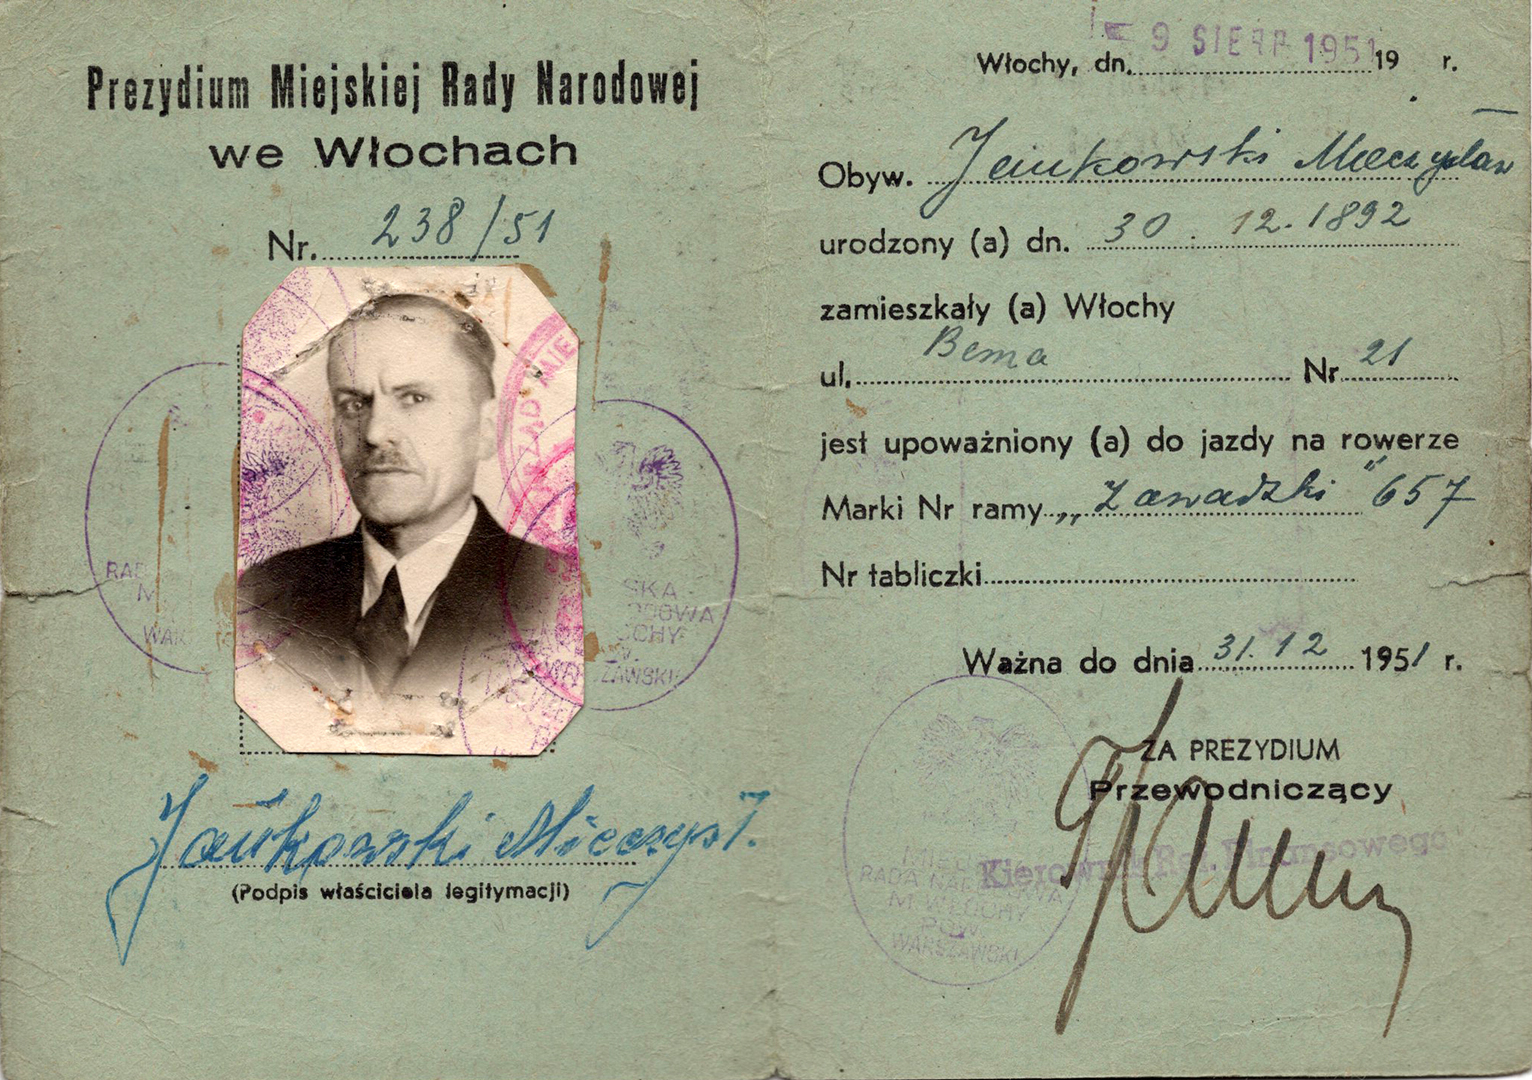 Prezydium Miejskiej Rady Narodowej
we Włochach
Nr. 238/51
(Podpis właściciela legitymacji)
Jankowski Mieczysł.
Włochy, dn. - 9 SIERP 1951 19 r.
Obyw. Jankowski Mieczysław
urodzony (a) dn. 30. 12. 1892
zamieszkały (a) Włochy
ul. Bema Nr 21
jest upoważniony (a) do jazdy na rowerze
Marki Nr ramy „Zawadzki" 657
Nr tabliczki
Ważna do dnia 31. 12 1951 r.
ZA PREZYDIUM
Przewodniczący
Kierownik Ref. Finansowego
MIEJSKA
RADA NARODOWA
M. WŁOCHY
POW.
WARSZAWSKI